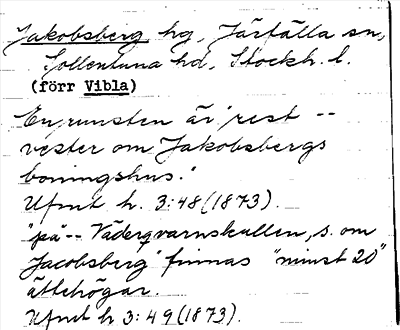 Jakobsberg hg, Järfälla sn,
Sollentuna hd, Stockh. l.
(förr Vibla)
"En runsten är rest --
vester om Jakobsbergs
boningshus."
Ufmt h. 3:48 (1873).
"på -- Väderqvarnskullen, s. om
Jacobsberg" finnas "minst 20"
ättehögar.
Ufmt h 3:49 (1873).